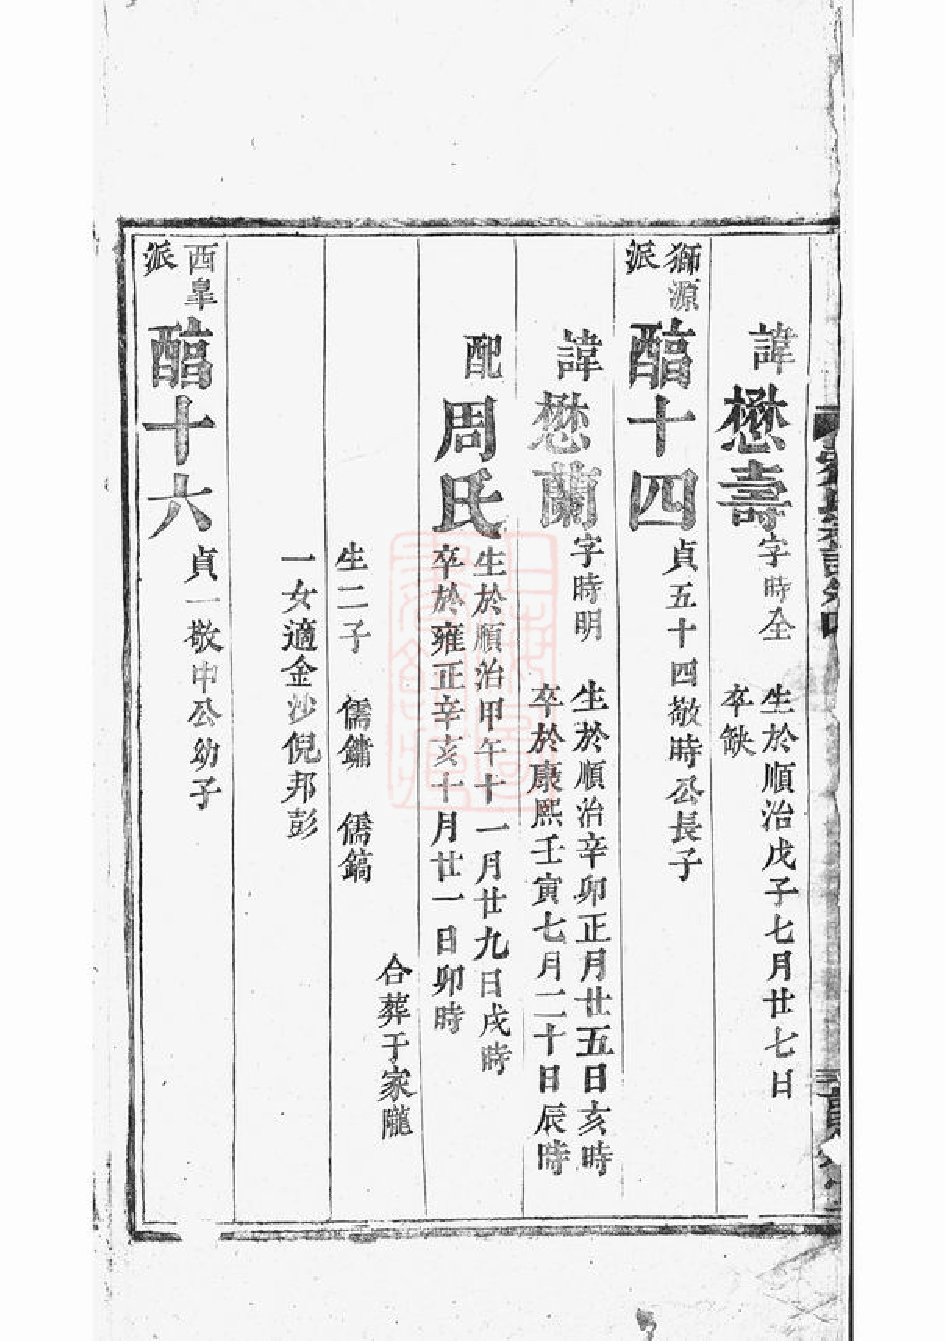 諱懋壽字時全 生於順治戊子七月廿七日
卒缺
獅源
派
醕十四 貞五十四敬時公長子
諱懋蘭字時明 生於順治辛卯正月廿五日亥時
卒於康熙壬寅七月二十日辰時
配周氏 生於順治甲午十一月廿九日戌時
卒於雍正辛亥十月廿一日卯時
合葬于家隴
生二子 儒鏞 儒鎬
一女適金沙倪邦彭
西皐
派
醕十六 貞一敬中公幼子